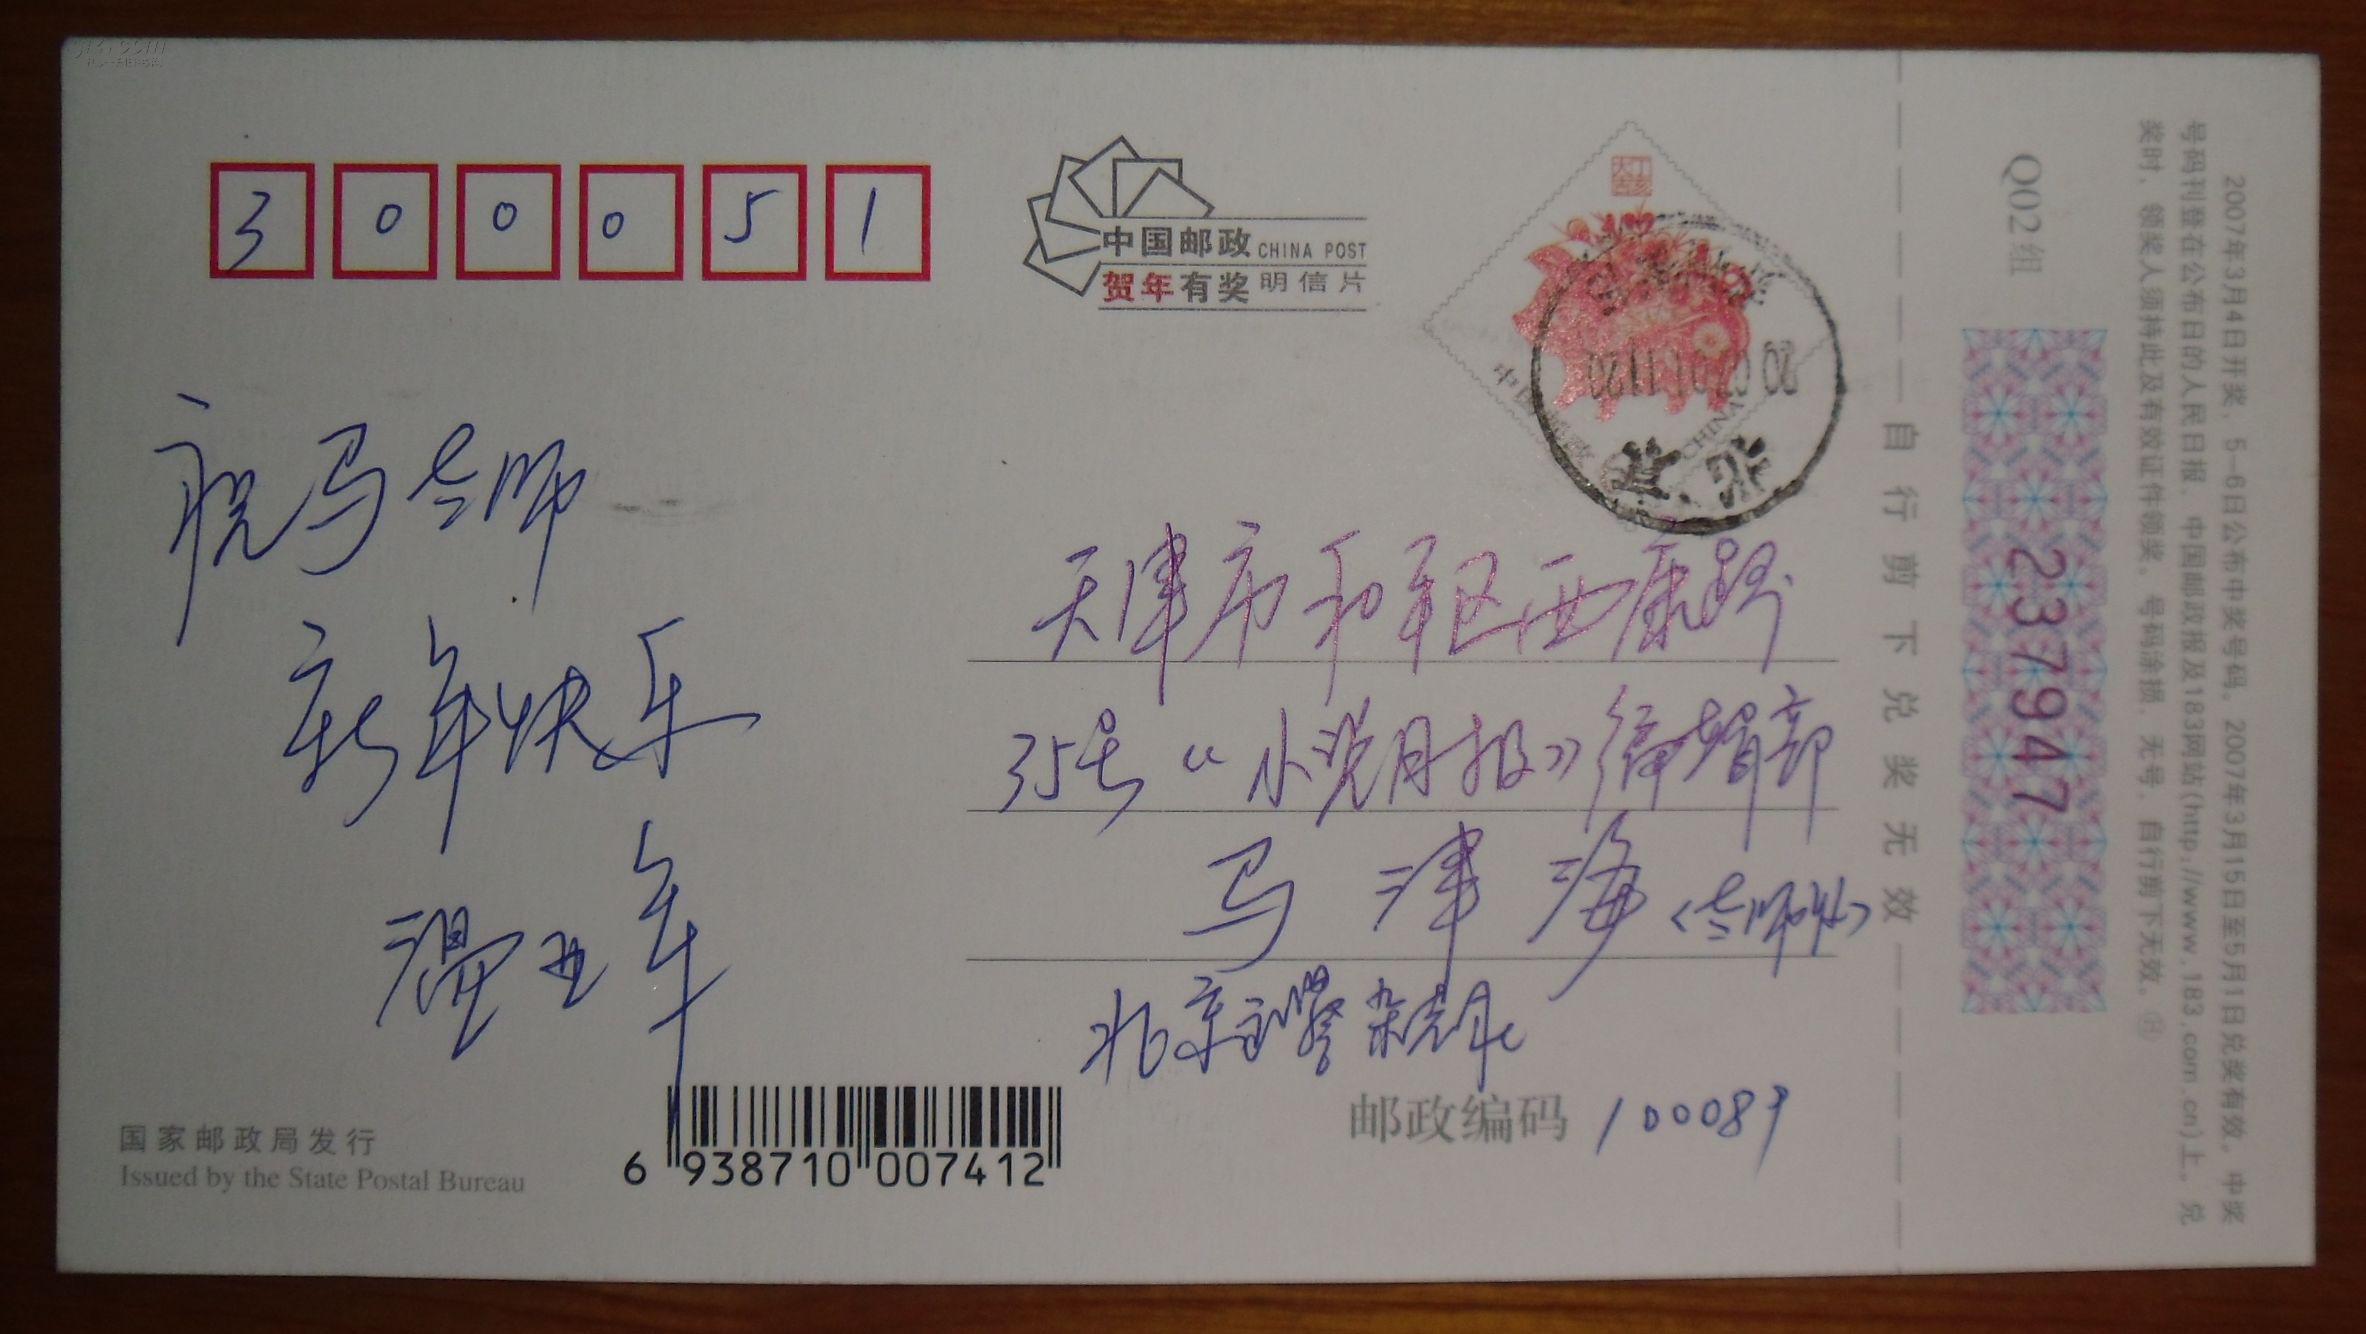 300051
中国邮政 CHINA POST
贺年有奖 明信片
丁亥大吉
中国邮政
CHINA
北京
祝马老师
新年快乐
温亚军
天津市和平区西康路
35号《小说月报》编辑部
马津海（老师收）
北京武警杂志社
邮政编码 100089
国家邮政局发行
Issued by the State Postal Bureau
6 938710 007412
自行剪下兑奖无效
Q02组
237947
2007年3月4日开奖，5-6日公布中奖号码。2007年3月15日至5月1日兑奖有效。中奖
号码刊登在公布日的人民日报、中国邮政报及183网站(http://www.183.com.cn)上。兑
奖时，领奖人须持此及有效证件领奖。号码涂损、无号、自行剪下无效。